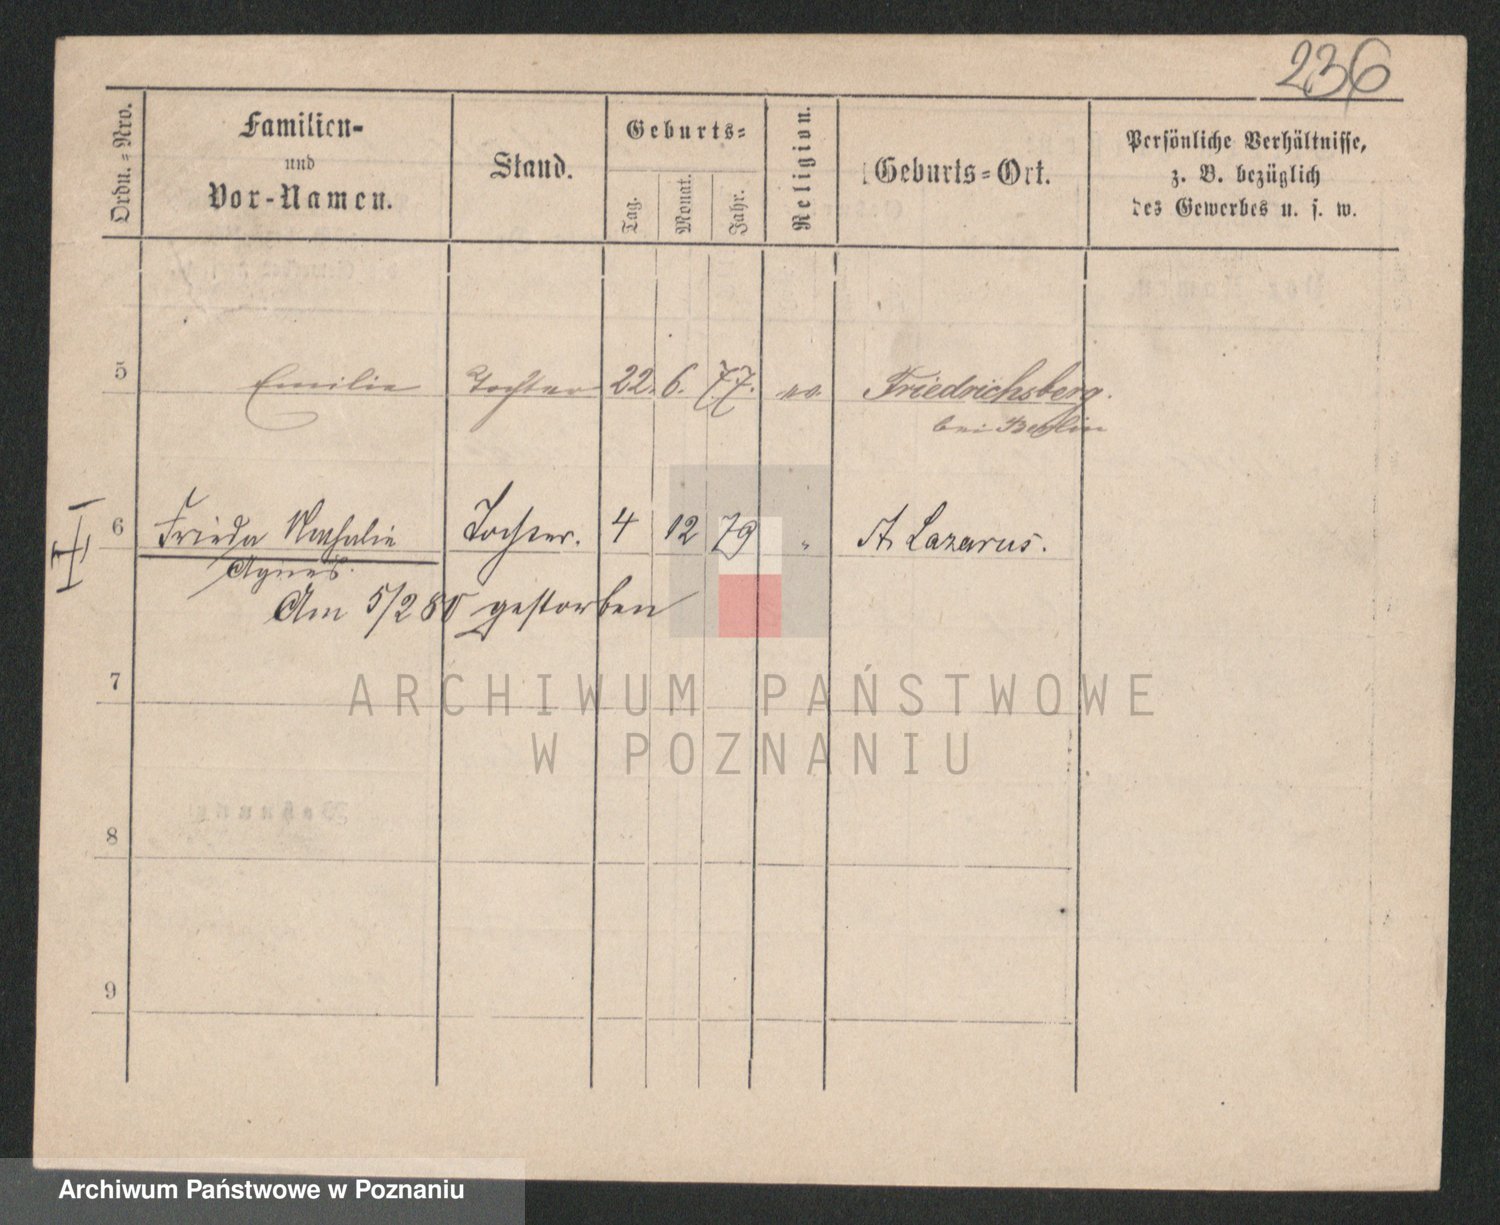 236
Ordn.=Nro.
Familien-
und
Vor-Namen.
Stand.
Geburts=
Tag.
Monat.
Jahr.
Religion.
Geburts=Ort.
Persönliche Verhältnisse,
z. B. bezüglich
des Gewerbes u. s. w.
5 Emilie Tochter 22. 6. 77. ev. Friedrichsberg.
bei Berlin
6 Frieda Nathalie Tochter. 4 12 79 " St. Lazarus.
Agnes.
Am 5/2 80 gestorben
7
8
9
ARCHIWUM PAŃSTWOWE
W POZNANIU
Archiwum Państwowe w Poznaniu